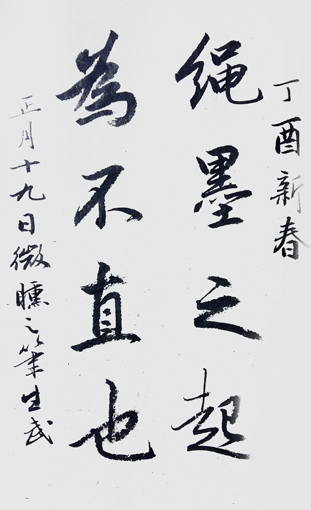 丁酉新春
绳墨之起
為不直也
正月十九日微醺之筆生武